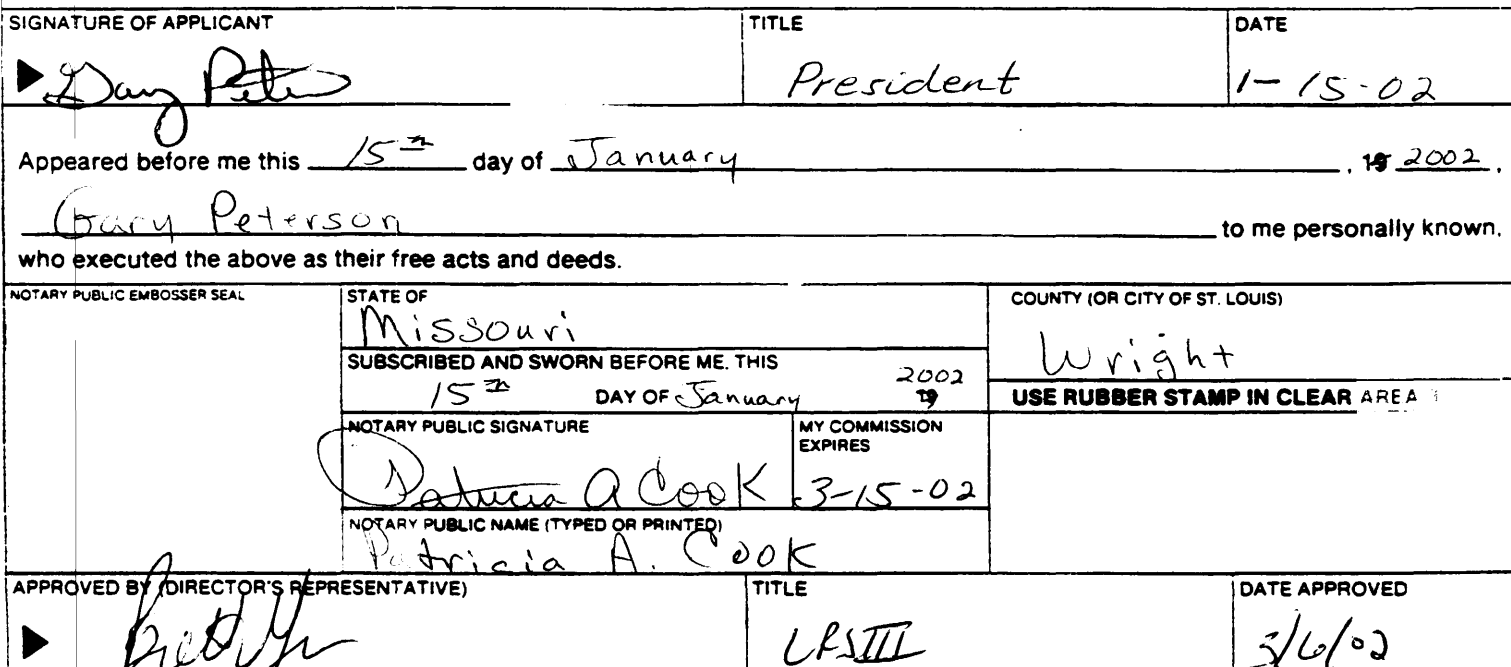 SIGNATURE OF APPLICANT TITLE DATE
Gary Peters President 1-15-02
Appeared before me this 15th day of January , 19 2002 ,
Gary Peterson to me personally known,
who executed the above as their free acts and deeds.
NOTARY PUBLIC EMBOSSER SEAL STATE OF COUNTY (OR CITY OF ST. LOUIS)
Missouri Wright
SUBSCRIBED AND SWORN BEFORE ME, THIS
15th DAY OF January 2002 19 USE RUBBER STAMP IN CLEAR AREA
NOTARY PUBLIC SIGNATURE MY COMMISSION
EXPIRES
Patricia A Cook 3-15-02
NOTARY PUBLIC NAME (TYPED OR PRINTED)
Patricia A. Cook
APPROVED BY (DIRECTOR'S REPRESENTATIVE) TITLE DATE APPROVED
LRSIII 3/6/02